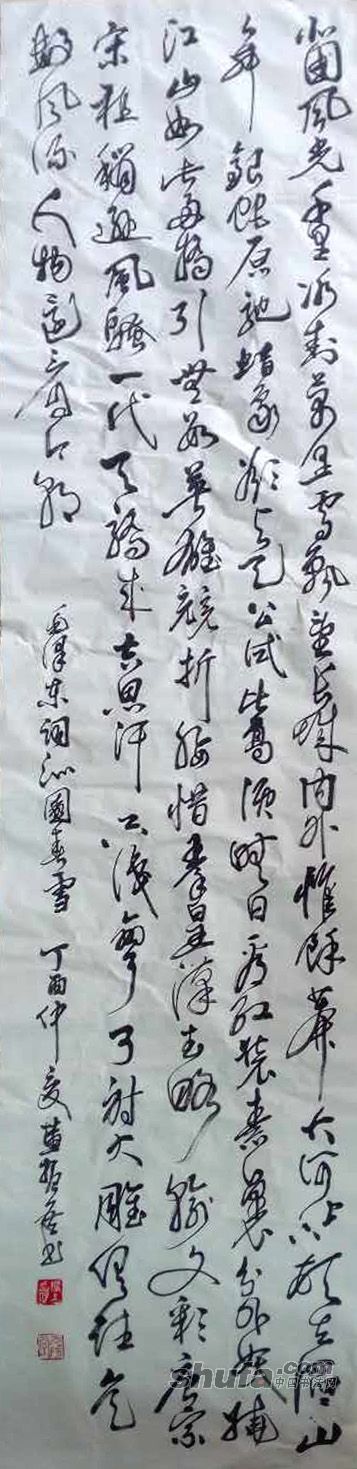 北國風光千里冰封萬里雪飄望長城内外惟餘莽大河上下頓失滔山
舞銀蛇原馳蠟象欲與天公試比高須晴日看紅裝素裹分外妖嬈
江山如此多嬌引無數英雄競折腰惜秦皇漢武略輸文彩唐宗
宋祖稍遜風騷一代天驕成吉思汗只識彎弓射大雕俱往矣
數風流人物還看今朝
毛澤東詞沁園春雪 丁酉仲夏書
shufa.com
中国书法网